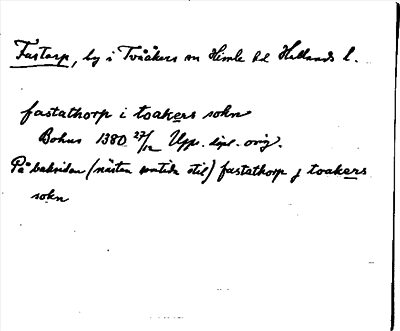 Fastarp, by i Tvååkers sn Himle hd Hallands l.
fastathorp i toakers sokn
Bohus 1380 27/12 Upps. dipl. orig.
På baksidan (nästan samtida stil) fastathorp j toakers
sokn